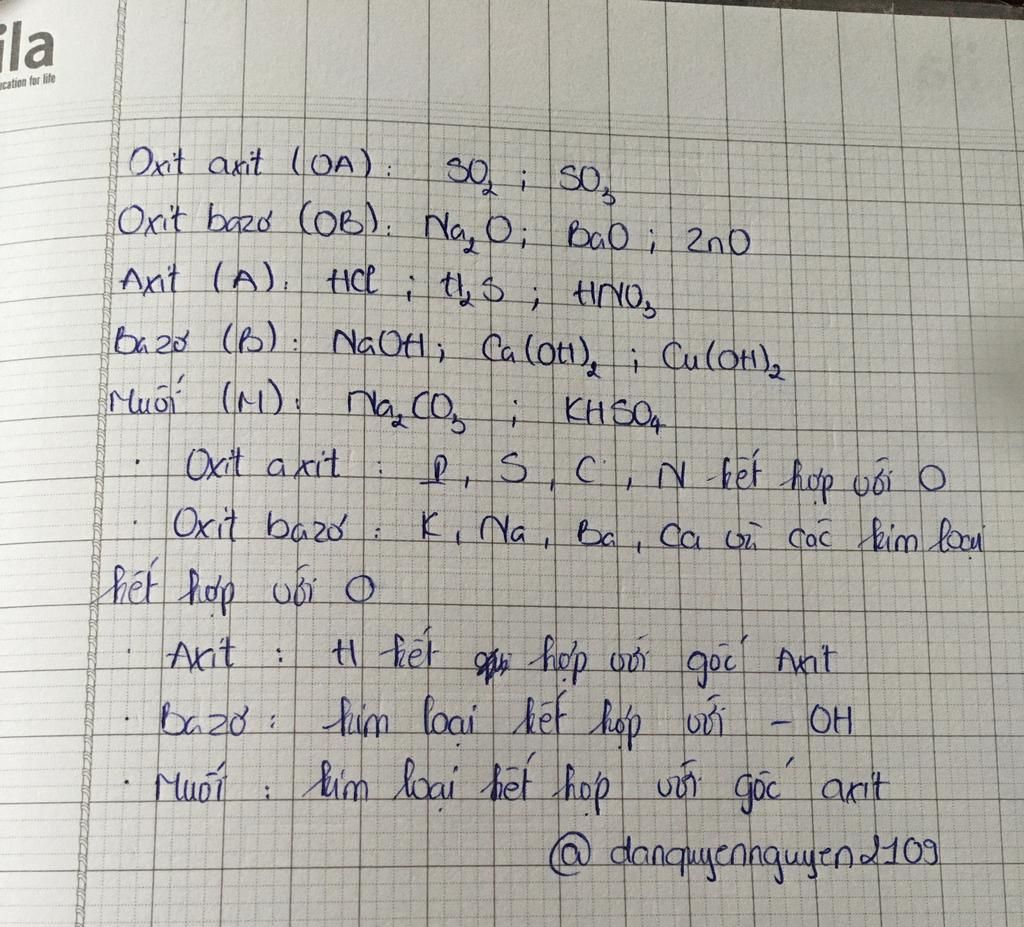 ila
cation for life
Oxit axit (OA): SO₂ ; SO₃
Oxit bazơ (OB): Na₂O; BaO; ZnO
Axit (A): HCl ; H₂S ; HNO₃
Bazơ (B): NaOH; Ca(OH)₂ ; Cu(OH)₂
Muối (M): Na₂CO₃ ; KHSO₄
· Oxit axit : P, S, C, N kết hợp với O
· Oxit bazơ : K, Na, Ba, Ca và các kim loại
kết hợp với O
· Axit : H kết hợp với gốc Axit
· Bazơ : kim loại kết hợp với - OH
· Muối : kim loại kết hợp với gốc axit
@danquyennguyen2109